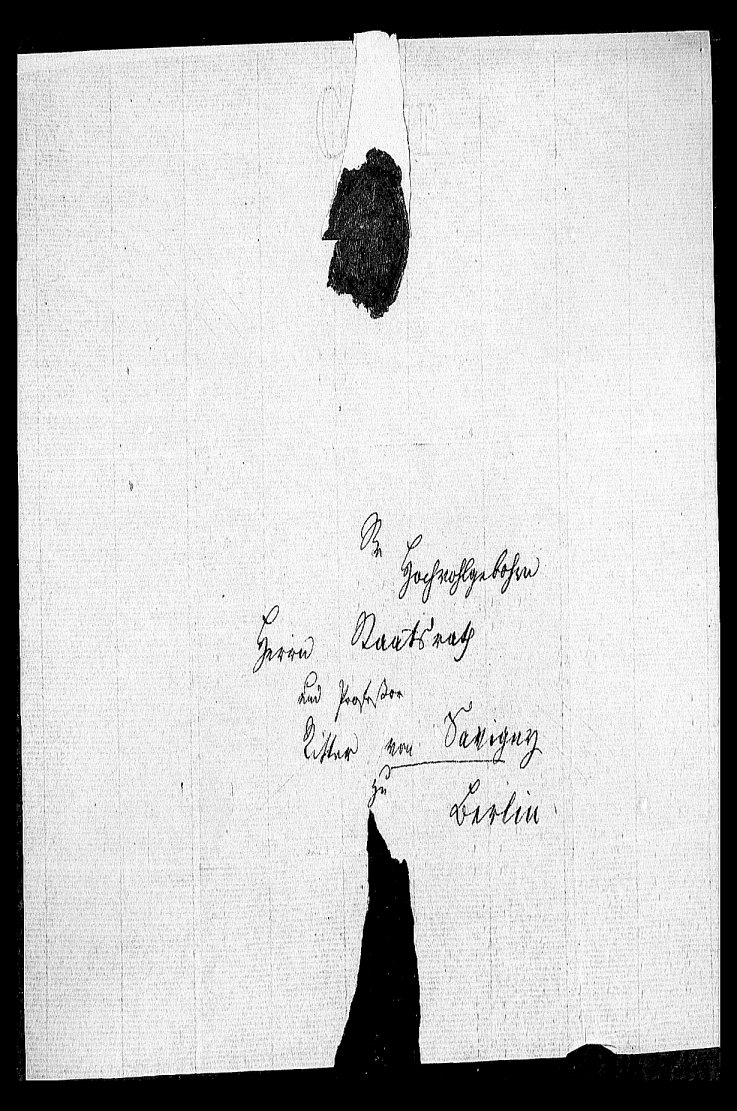 Sr
Hochwohlgebohrn
Herrn Staatsrath
und Professor
Ritter von Savigny
zu
Berlin